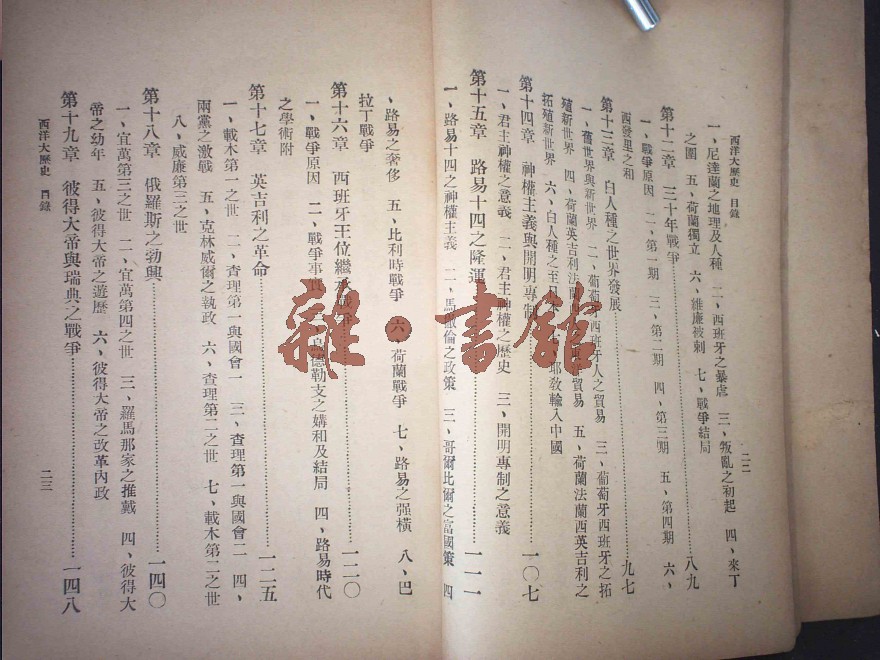 西洋大歷史 目錄
二二
一、尼達蘭之地理及人種 二、西班牙之暴虐 三、叛亂之初起 四、來丁
之圍 五、荷蘭獨立 六、維廉被刺 七、戰爭結局
第十二章 三十年戰爭……八九
一、戰爭原因 二、第一期 三、第二期 四、第三期 五、第四期 六、
西發里之和
第十三章 白人種之世界發展……九七
一、舊世界與新世界 二、葡萄牙西班牙人之貿易 三、葡萄牙西班牙之拓
殖新世界 四、荷蘭英吉利法西 貿易 五、荷蘭法蘭西英吉利之
拓殖新世界 六、白人種之至日本 七、耶教輸入中國
第十四章 神權主義與開明專制……一〇七
一、君主神權之意義 二、君主神權之歷史 三、開明專制之意義
第十五章 路易十四之隆運……一一一
一、路易十四之神權主義 二、馬薩倫之政策 三、哥爾比爾之富國策 四
、路易之奢侈 五、比利時戰爭 六、荷蘭戰爭 七、路易之强橫 八、巴
拉丁戰爭
第十六章 西班牙王位繼承戰爭……一二〇
一、戰爭原因 二、戰爭事實 烏德勒支之媾和及結局 四、路易時代
之學術附
第十七章 英吉利之革命……一二五
一、載木第一之世 二、查理第一與國會一 三、查理第一與國會二 四、
兩黨之激戰 五、克林威爾之執政 六、查理第二之世 七、載木第二之世
八、威廉第三之世
第十八章 俄羅斯之勃興……一四〇
一、宜萬第三之世 二、宜萬第四之世 三、羅馬那家之推戴 四、彼得大
帝之幼年 五、彼得大帝之遊歷 六、彼得大帝之改革內政
第十九章 彼得大帝與瑞典之戰爭……一四八
西洋大歷史 目錄
二三
雜·書館